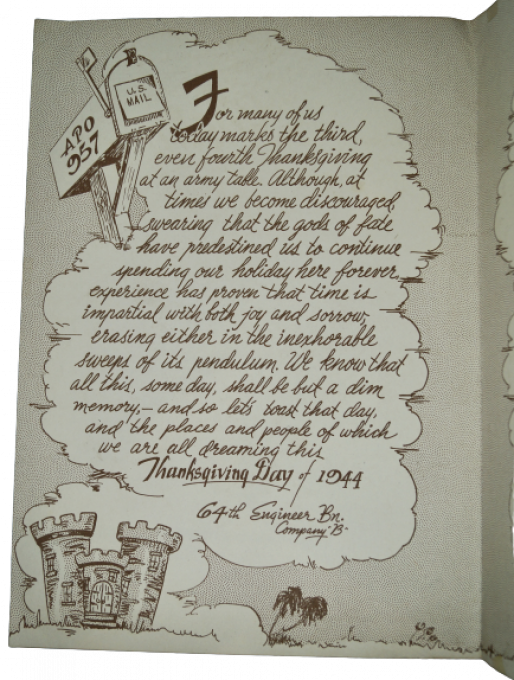 U.S.
MAIL
APO
957
For many of us
today marks the third,
even fourth Thanksgiving
at an army table. Although, at
times we become discouraged,
swearing that the gods of fate
have predestined us to continue
spending our holiday here forever,
experience has proven that time is
impartial with both joy and sorrow,
erasing either in the inexhorable
sweeps of its pendulum. We know that
all this, some day, shall be but a dim
memory,— and so let's toast that day,
and the places and people of which
we are all dreaming this
Thanksgiving Day of 1944
64th Engineer Bn.
Company "B"